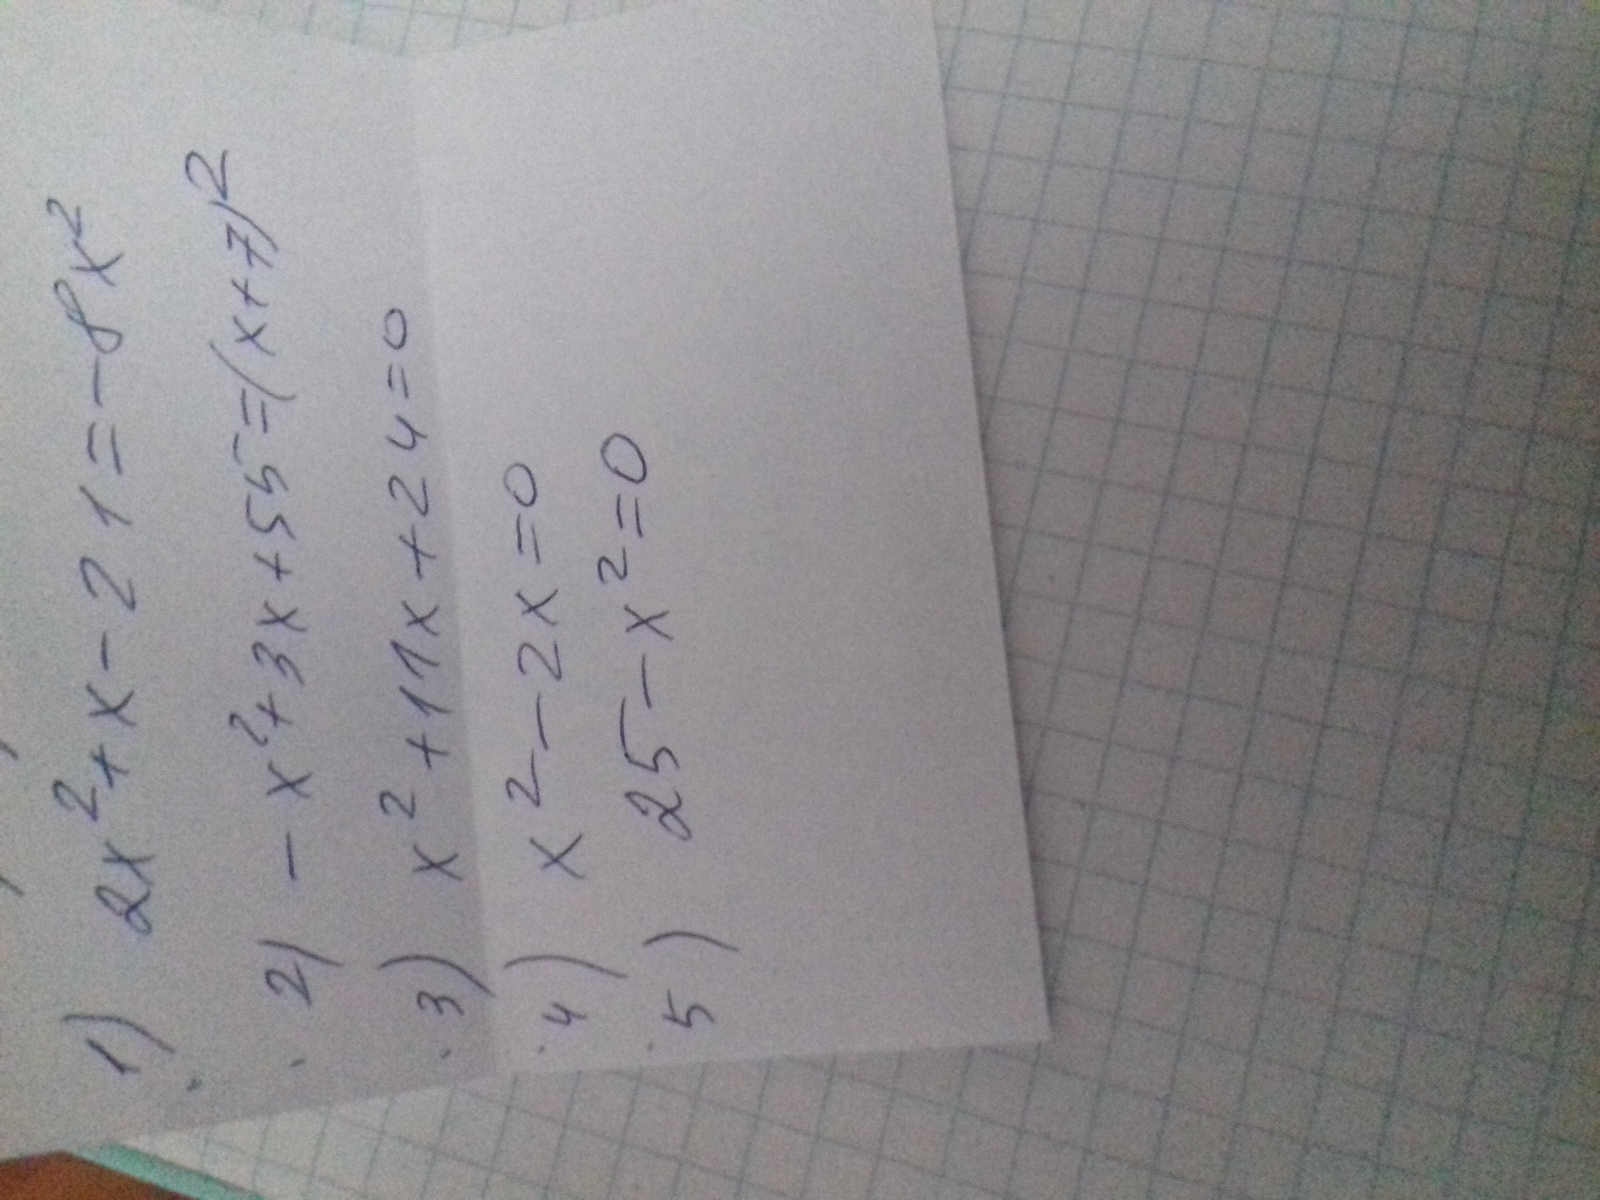 1) 2x²+x-21=-8x²
2) -x²+3x+55=(x+7)²
3) x²+11x+24=0
4) x²-2x=0
5) 25-x²=0